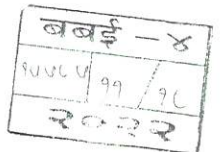 बबई - ४
१५५८५ ११ / १८
२०२२